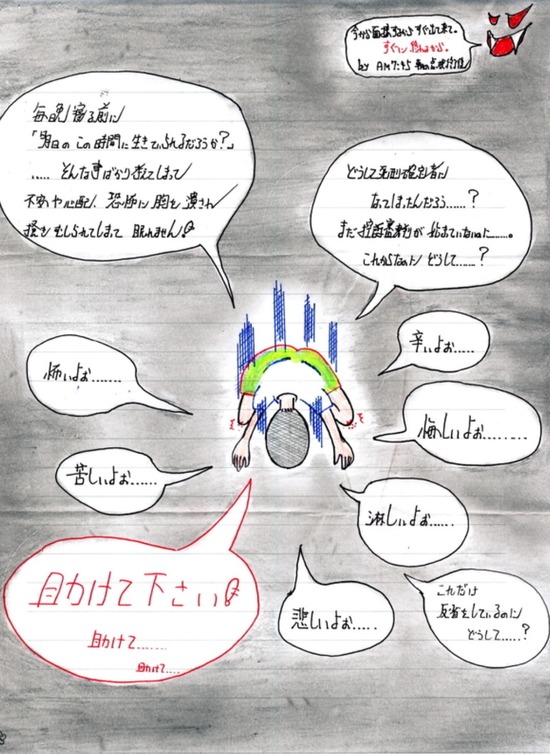 今から面接するからすぐ出て来て。
すぐつ
by AM7:45
毎晩寝る前に
「明日のこの時間に生きていられるだろうか?」
.....そんな事ばかり考えてしまって
不安や心配、恐怖に胸を潰され
眠れません!
どうして死刑確定者に
なってしまったんだろう......?
まだ控訴審判が始まっていないのに......。
これからなのにどうして......?
辛いよぉ.....
怖いよぉ.......
悔しいよぉ.........
苦しいよぉ......
淋しいよぉ......
助けて下さい!
助けて......
助けて....
悲しいよぉ.....
これだけ
反省をしているのに
どうして.....?